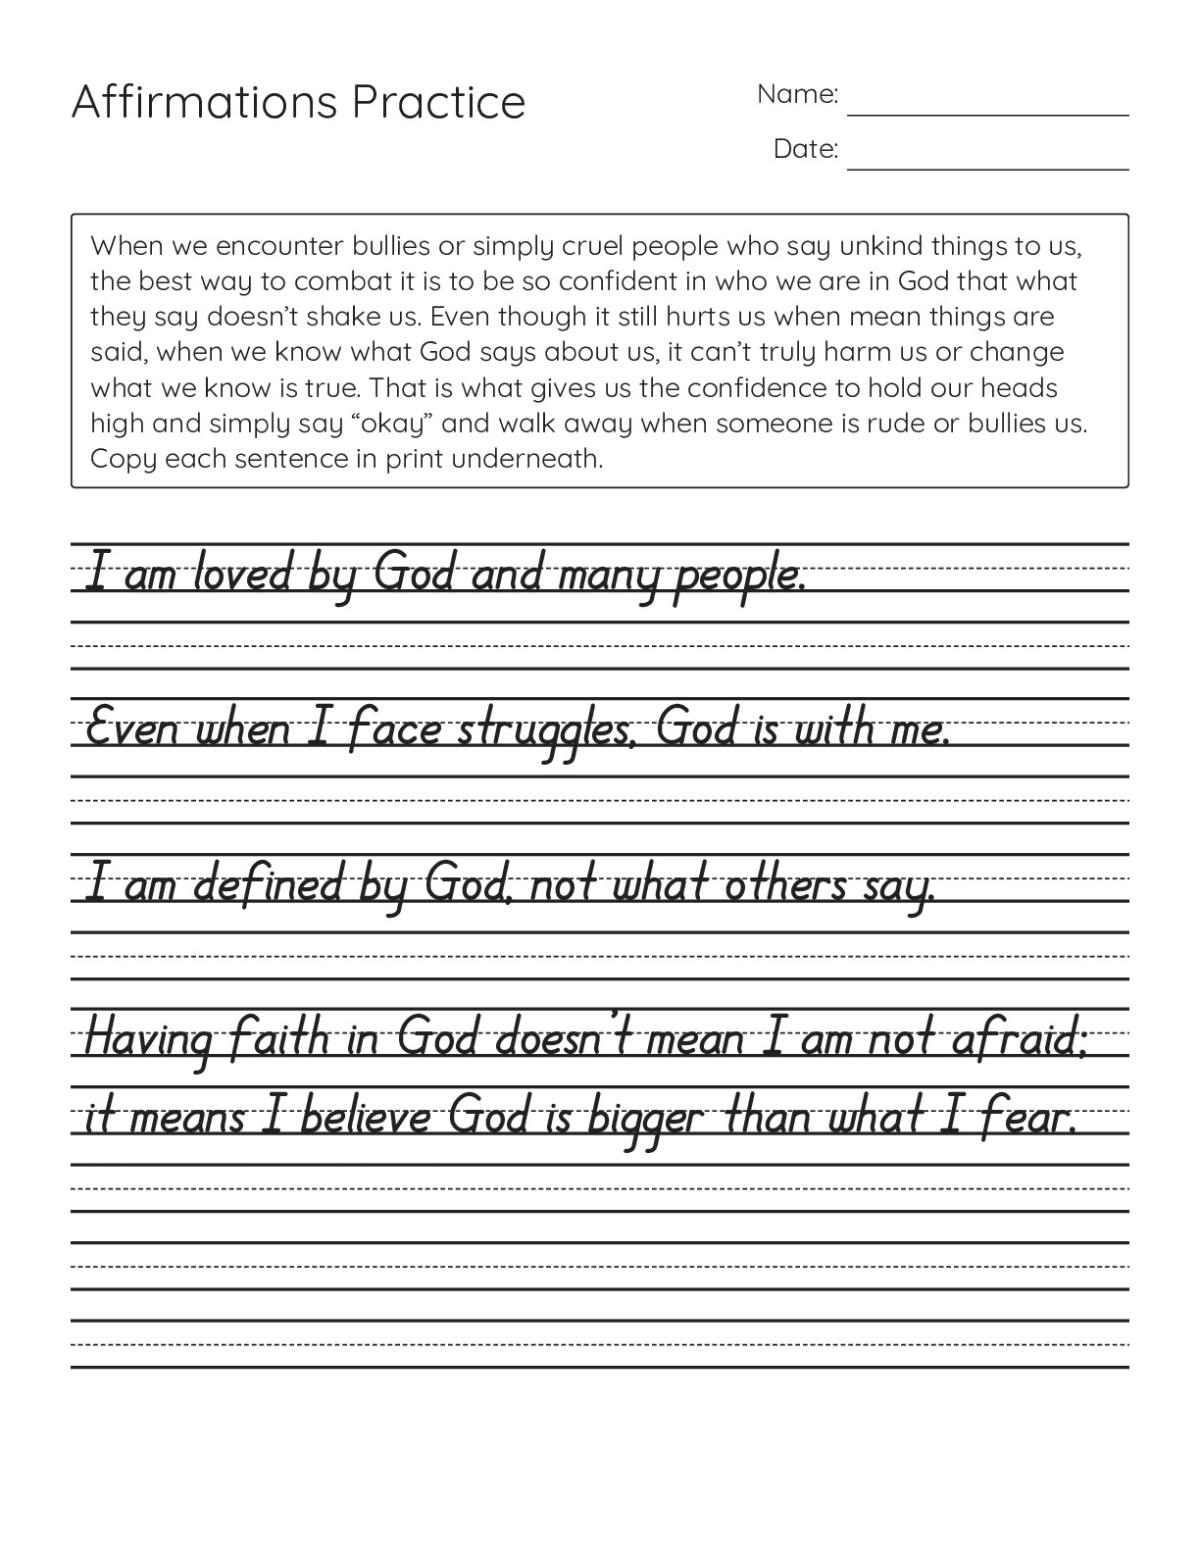 Affirmations Practice
Name:
Date:
When we encounter bullies or simply cruel people who say unkind things to us,
the best way to combat it is to be so confident in who we are in God that what
they say doesn’t shake us. Even though it still hurts us when mean things are
said, when we know what God says about us, it can’t truly harm us or change
what we know is true. That is what gives us the confidence to hold our heads
high and simply say “okay” and walk away when someone is rude or bullies us.
Copy each sentence in print underneath.
I am loved by God and many people.
Even when I face struggles, God is with me.
I am defined by God, not what others say.
Having faith in God doesn’t mean I am not afraid;
it means I believe God is bigger than what I fear.